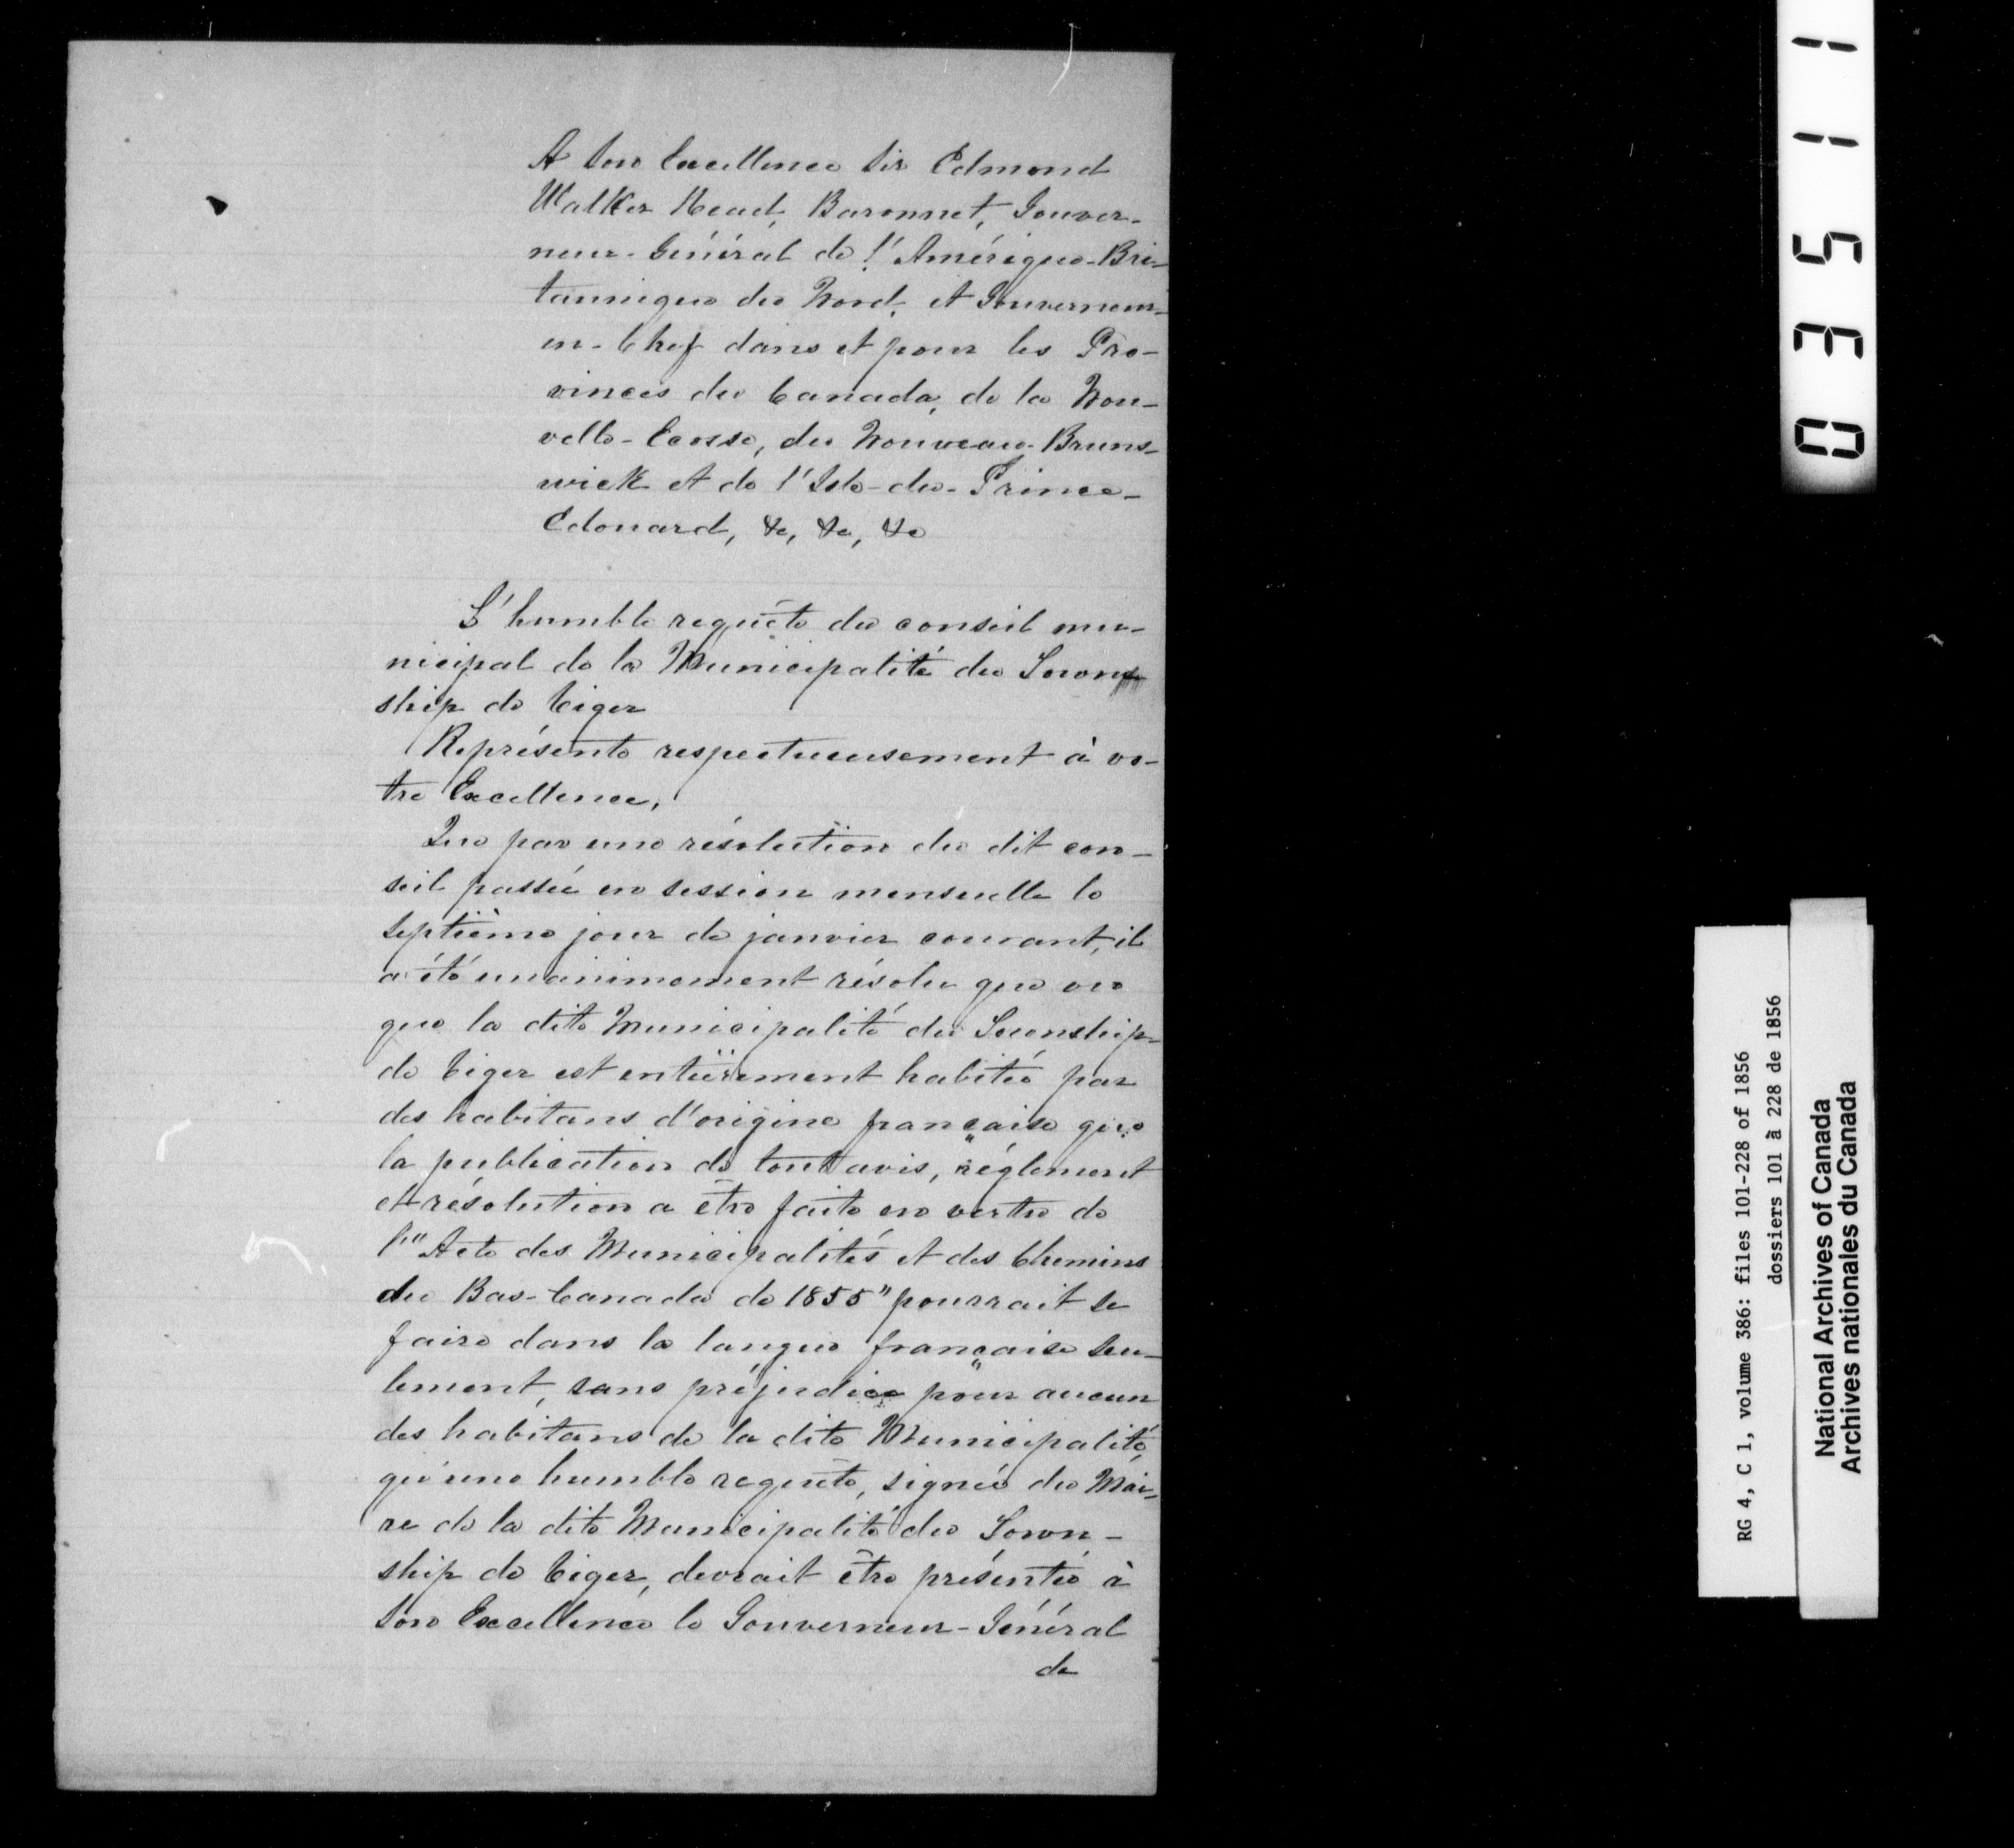 A Son Excellence Sir Edmond
Walker Head, Baronnet, Gouver-
neur-Général de l'Amérique-Bri-
tannique du Nord, et Gouverneur-
en-Chef dans et pour les Pro-
vinces du Canada, de la Nou-
velle-Ecosse, du Nouveau-Bruns-
wick et de l'Isle-du-Prince-
Edouard, &c, &c, &c
L'humble requête du conseil mu-
nicipal de la Municipalité du Town-
ship de Viger
Représente respectueusement à vo-
tre Excellence,
Que par une résolution du dit con-
seil passée en session mensuelle le
septième jour de janvier courant, il
a été unanimement résolu que vu
que la dite Municipalité du Township
de Viger est entièrement habitée par
des habitans d'origine française que
la publication de tout avis, règlement
et résolution a être faite en vertu de
l'"Acte des Municipalités et des Chemins
du Bas-Canada de 1855" pourrait se
faire dans la langue française seu-
lement, sans préjudice pour aucun
des habitans de la dite Municipalité,
qu'une humble requête, signée du Mai-
re de la dite Municipalité du Town-
ship de Viger, devrait être présentée à
Son Excellence le Gouverneur-Général
de
03511
RG 4, C 1, volume 386: files 101-228 of 1856
dossiers 101 à 228 de 1856
National Archives of Canada
Archives nationales du Canada